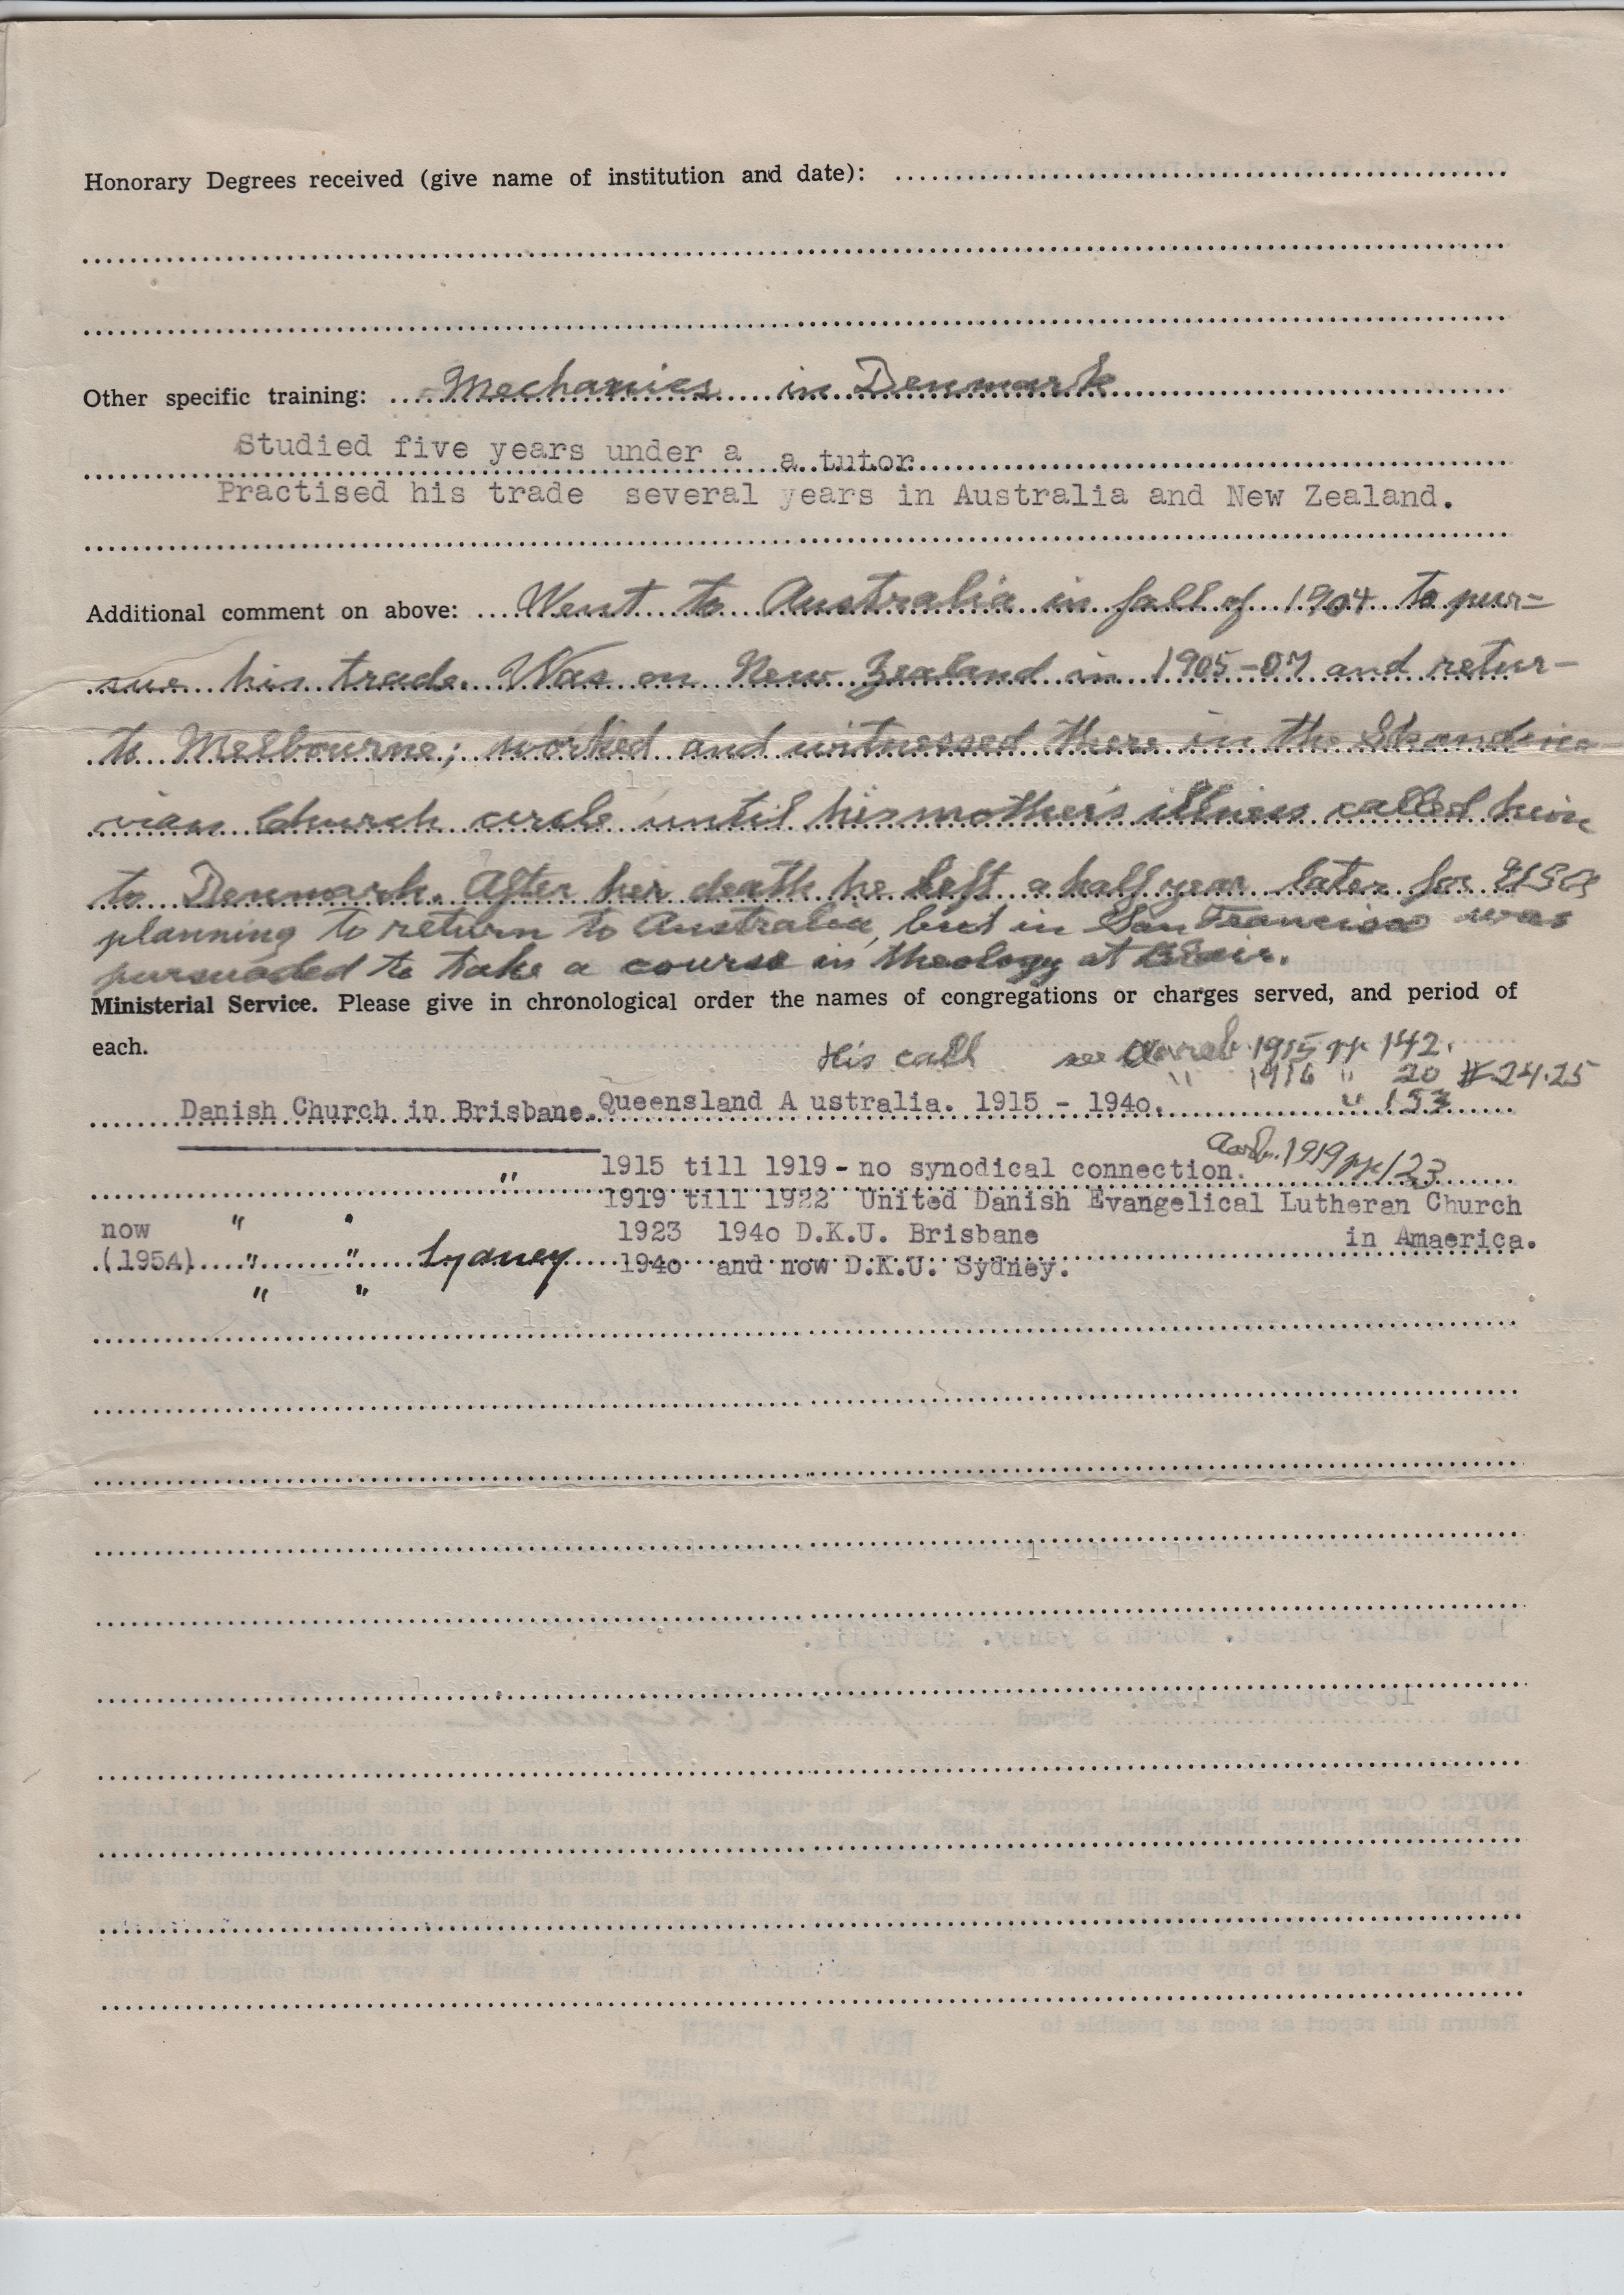 Honorary Degrees received (give name of institution and date):
Other specific training: Mechanics in Denmark
Studied five years under a a tutor
Practised his trade several years in Australia and New Zealand.
Additional comment on above: Went to Australia in fall of 1904 to pur=
sue his trade. Was on New Zealand in 1905-07 and retur-
to Melbourne; worked and witnessed there in the Skandina
vian Church circle until his mother's illness called him
to Denmark. After her death he left a half year later for USA
planning to return to Australia, but in San Francisco was
pursuaded to take a course in theology at Blair.
Ministerial Service. Please give in chronological order the names of congregations or charges served, and period of
each.
His call see 1915 pp 142.
" 1916 " 20 # 24.25
Danish Church in Brisbane. Queensland A ustralia. 1915 - 194o. " 153
" 1915 till 1919 - no synodical connection. 1919 pp 123
1919 till 1922 United Danish Evangelical Lutheran Church
now " " 1923 194o D.K.U. Brisbane in Amaerica.
(1954) " " Sydney 194o and now D.K.U. Sydney.
" "